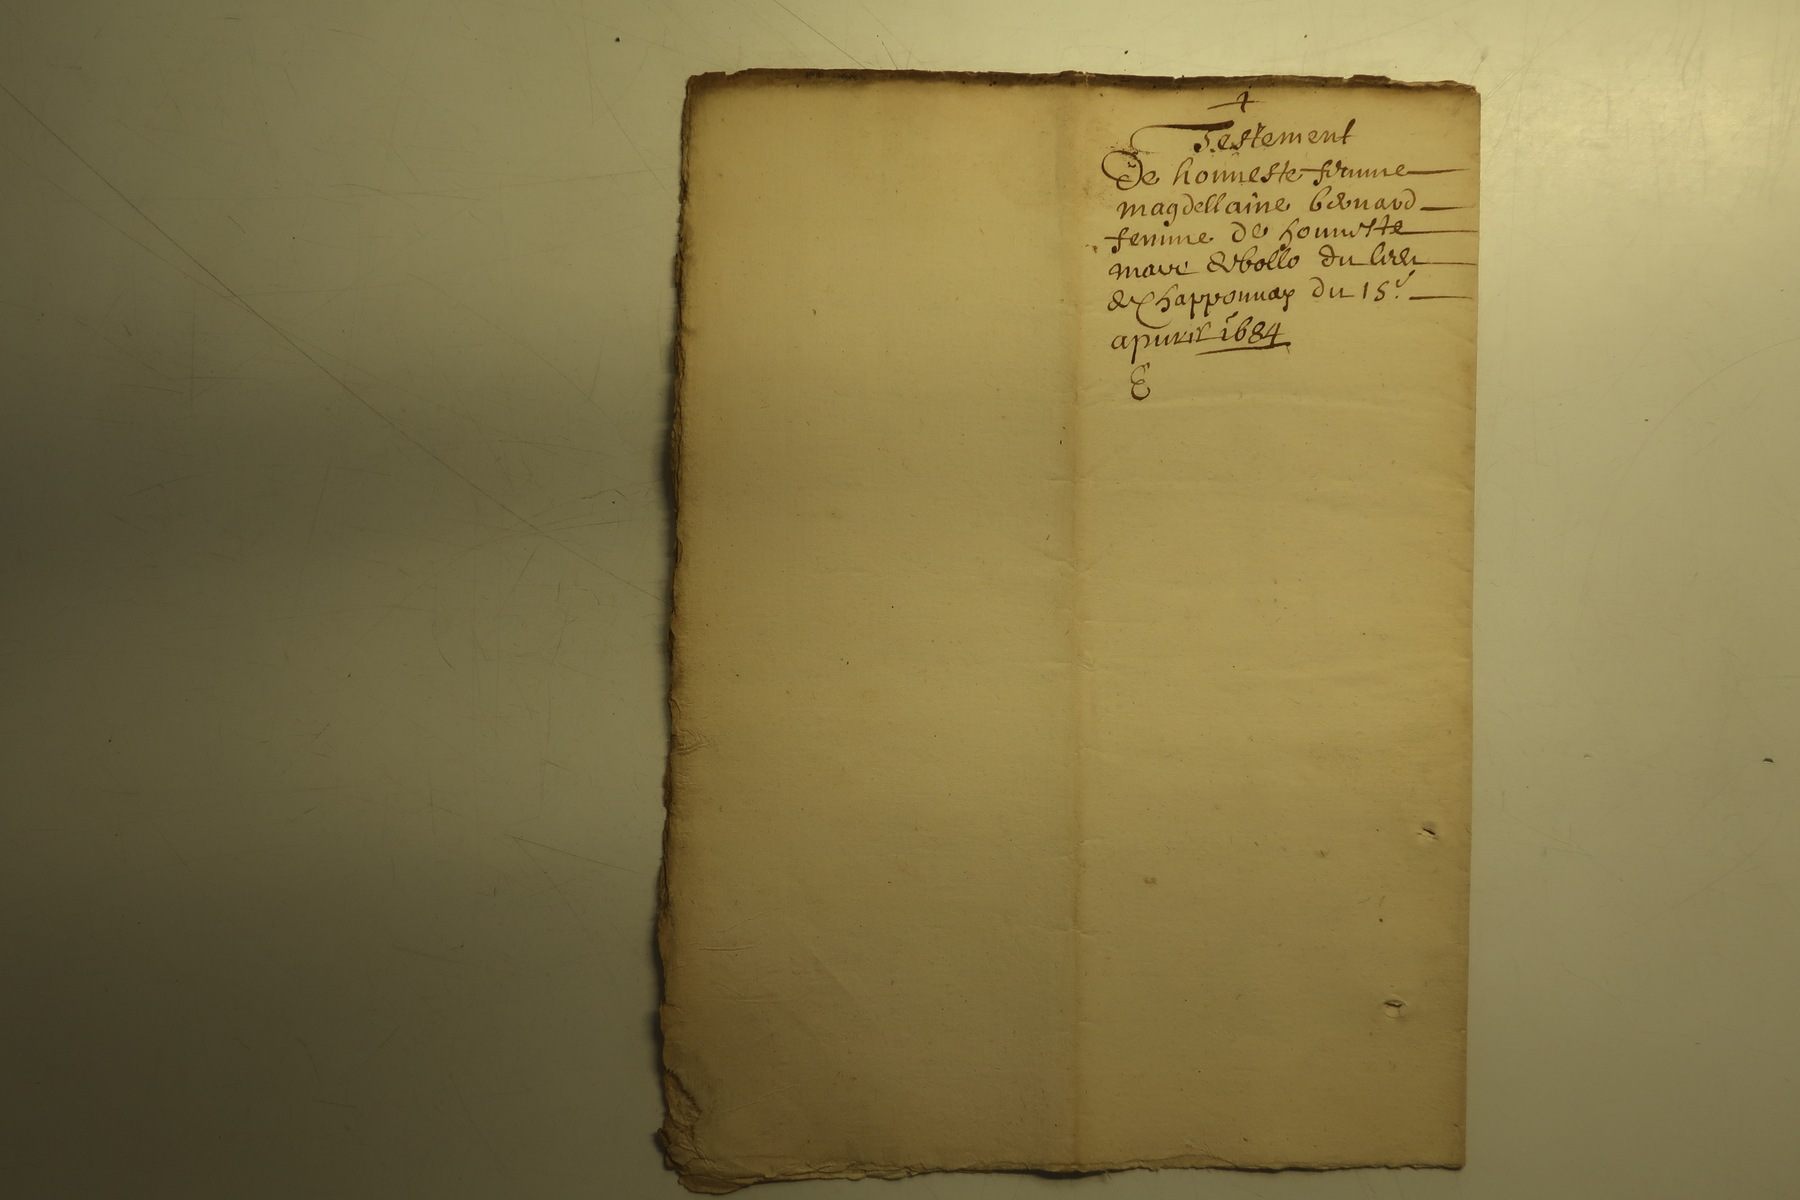 4
Testement
De honneste femme
magdellaine bernard
femme de honneste
marc rebollo du lieu
de Chapponnay du 15e
apuril 1684
E